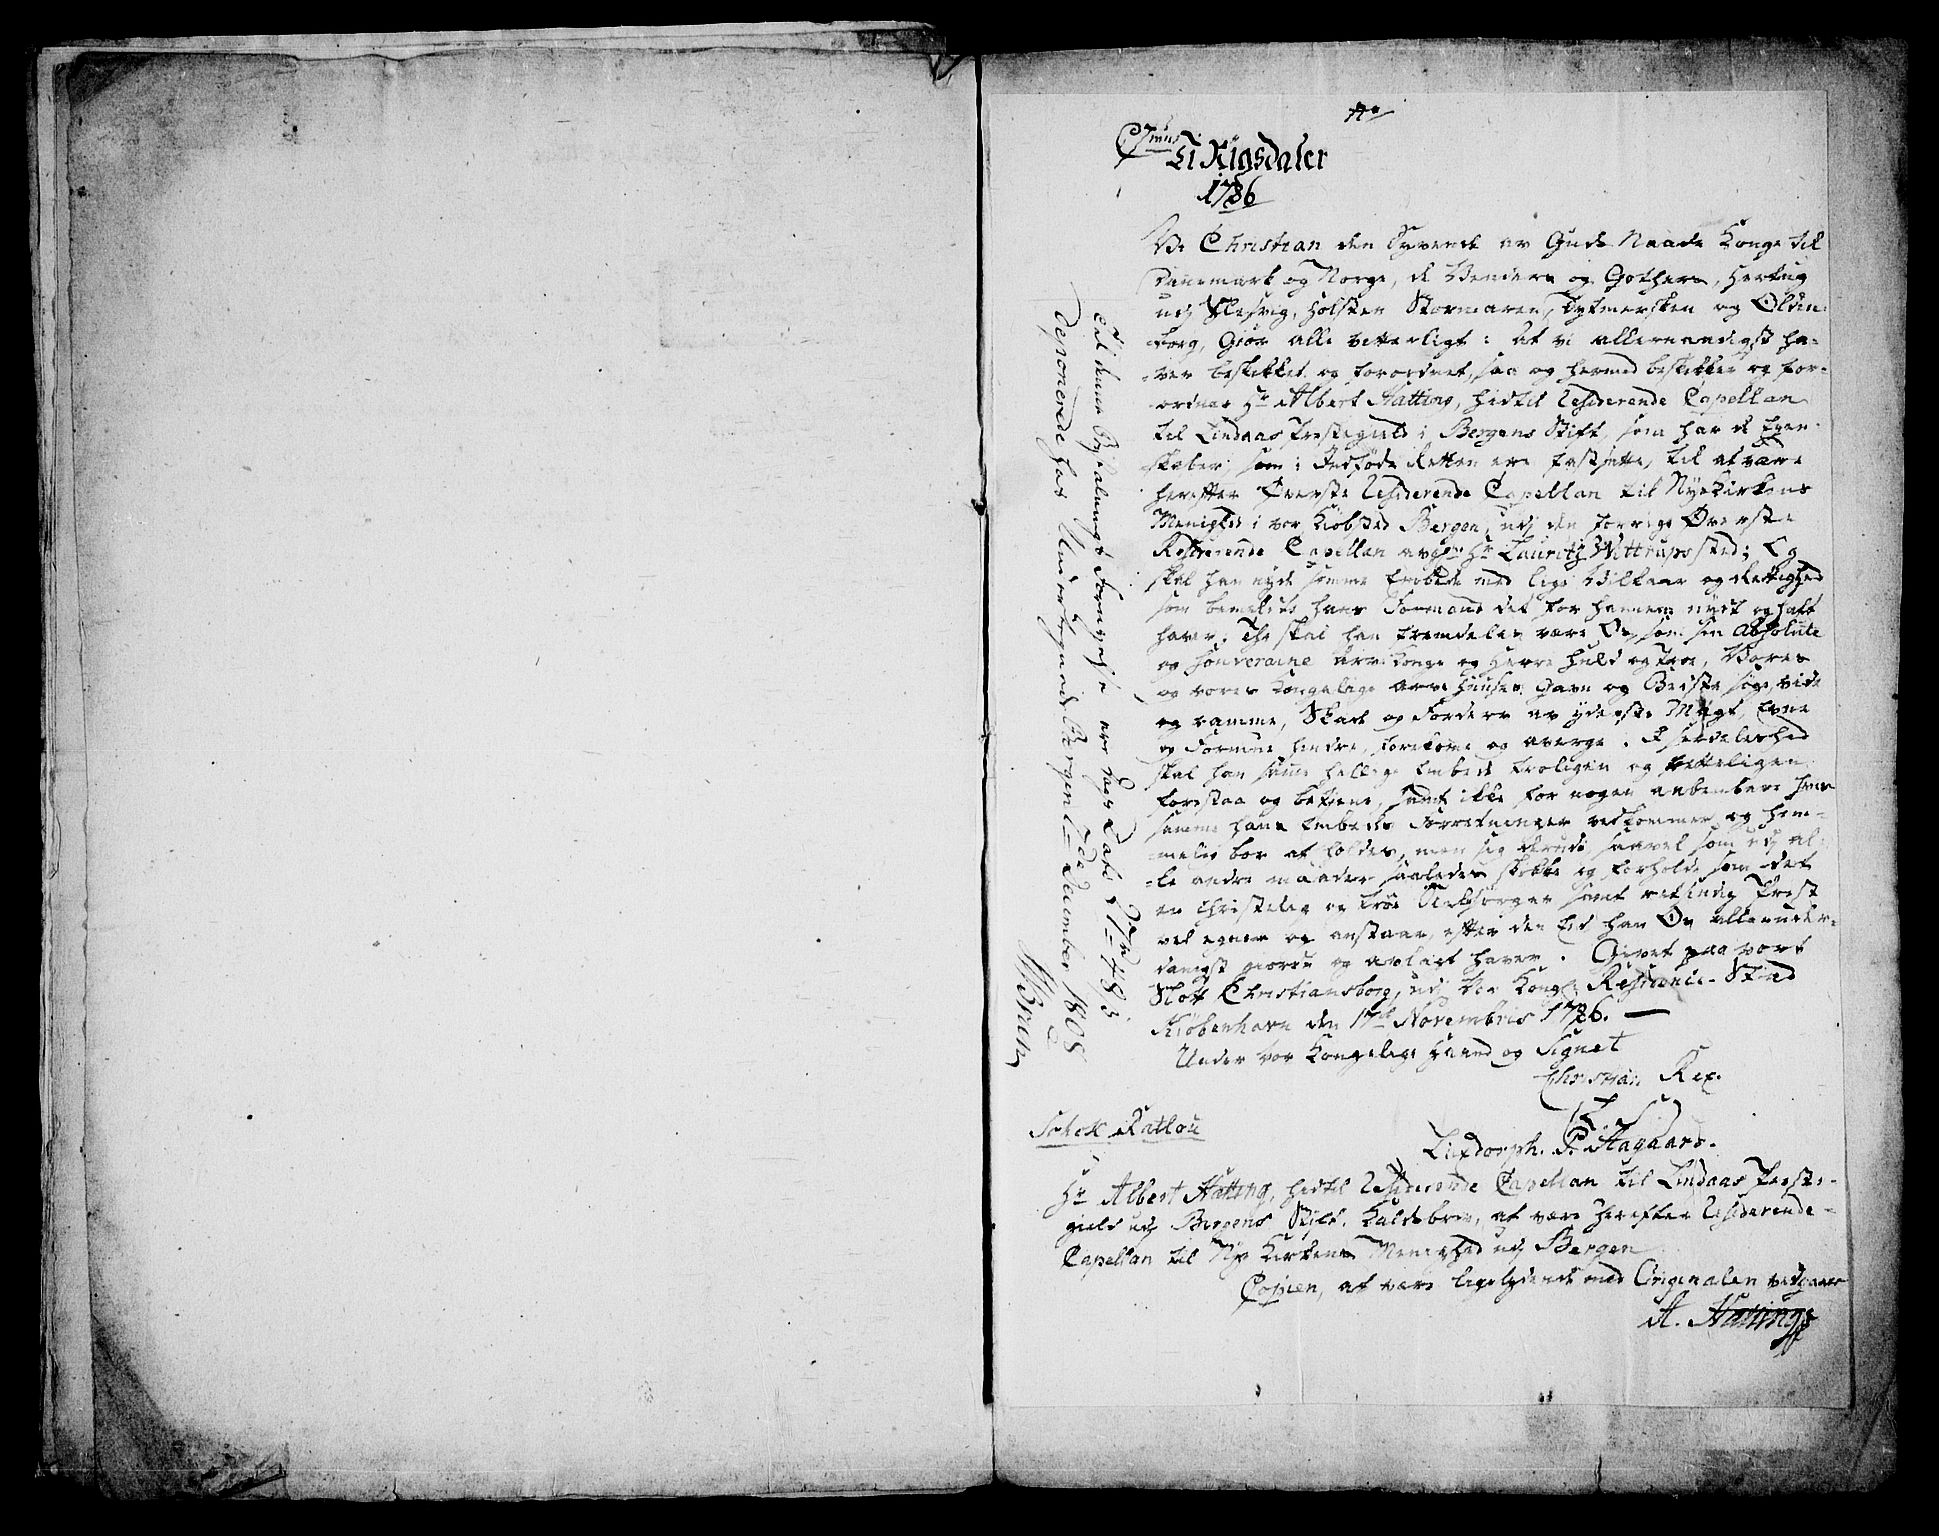 Ti Rigsdaler
1786
Vi Christian den Syvende av Guds Naade Konge til
Danemark og Norge, de Venders og Gothers, Hertug
udj Slesvig, Holsten Stormaren, Dytmersken og Olden-
borg, Giør alle vitterligt: at vi allernaadigst ha-
ver beskikket og forordnet, saa og hermed beskikker og for-
ordner Hr Albert Hatting, hidtil Residerende Capellan
til Lindaas Prestegield i Bergens Stift, som har de Egen-
skaber, som i Indføds Retten ere fastsatte, til at være
herefter Øverste Residerende Capellan til Nyekirkens
Menighed i vor Kiøbsted Bergen, udj den forrige Øverste
Residerende Capellan avgne Hr Lauritz Wittrups sted; Og
skal han nyde samme Embede med lige Vilkaar og Rettighed
som bemeldte hans Formand det for hannem nydt og haft
haver. Thi skal han fremdeles være Os som sin Absolute
og Souveraine Arve Konge og Herre huld og troe, Vores
og vores Kongelige Arve Huuses Gavn og Beste søge, vide
og ramme, Skade og Forderv av yderste Magt, Evne
og Formue hindre, forekome og averge. I særdeleshed
skal han samme hellige Embede troligen og fliteligen
forestaa og betiene, samt ikke for nogen aabenbare hvis
samme hans Embeds Forretninger vedkommer og hem-
melig bør at holdes, men sig derudi saavel som udj al-
le andre maader saaledes skikke og forholde som det
en Christelig og troe Siælesørger samt retsindig Præst
vel egner og anstaar, efter den Eed han Os allerunder-
danigst giort og avlagt haver. Givet paa vort
Slot Christiansborg, udj vor Kongl: Residence-Stæd
Kiøbenhavn den 17de Novembris 1786. —
Under vor Kongelige Haand og Signet
Christian Rex.
(L. S.)
Schack Ratlou
Luxdorph. P. Aagaard.
Hr Albert Hatting, hidtil Residerende Capellan til Lindaas Preste-
gield udj Bergens Stift, Kaldsbrev, at være herefter Residerende
Capellan til Nye Kirkens Menighed udj Bergen
Copien, at være ligelydende med Originalen vedgaaer
A. Hatting
Deponerede har Undertegnede Bergen 7de December 1808